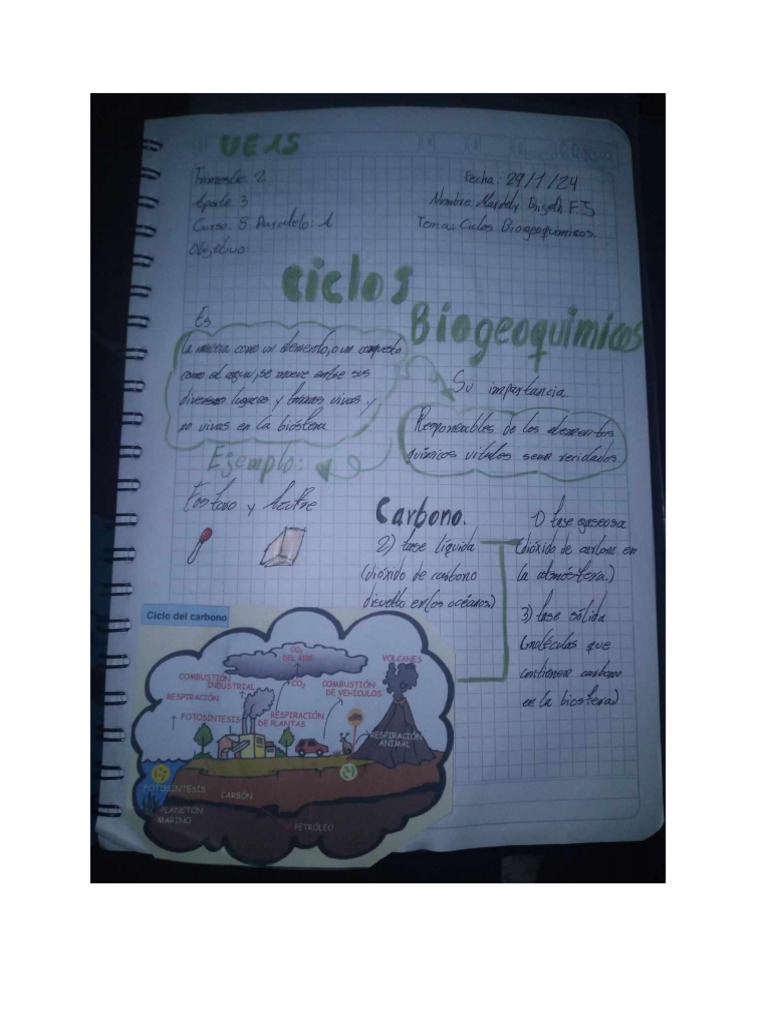 UE15
Trimestre: 2
Fecha: 29/1/24
Aporte: 3
Nombre: F.J
Curso: 8 Paralelo: 1
Tema: Ciclos Biogeoquimicos.
Objetivo:
Ciclos
Biogeoquimicos
Es
La materia como un elemento, o un compuesto
como el agua, se mueve entre sus
diversos lugares y formas vivas y
no vivas en la biósfera
Su importancia
Responsables de los elementos
químicos vitales sean reciclados.
Ejemplo:
Fosforo y Azufre
Carbono.
1) fase gaseosa
(dióxido de carbono en
la atmósfera.)
2) fase líquida
(dióxido de carbono
disuelto en los océanos)
3) fase sólida
(moléculas que
contienen carbono
en la biosfera)
Ciclo del carbono
CO2
DEL AIRE
VOLCANES
COMBUSTIÓN
INDUSTRIAL
CO2
COMBUSTIÓN
DE VEHÍCULOS
RESPIRACIÓN
FOTOSÍNTESIS
RESPIRACIÓN
DE PLANTAS
RESPIRACIÓN
ANIMAL
FOTOSINTESIS
CARBÓN
PLANCTON
MARINO
PETRÓLEO